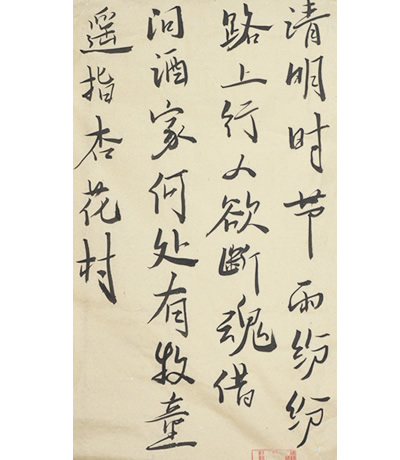 清明时节雨纷纷
路上行人欲断魂借
问酒家何处有牧童
遥指杏花村